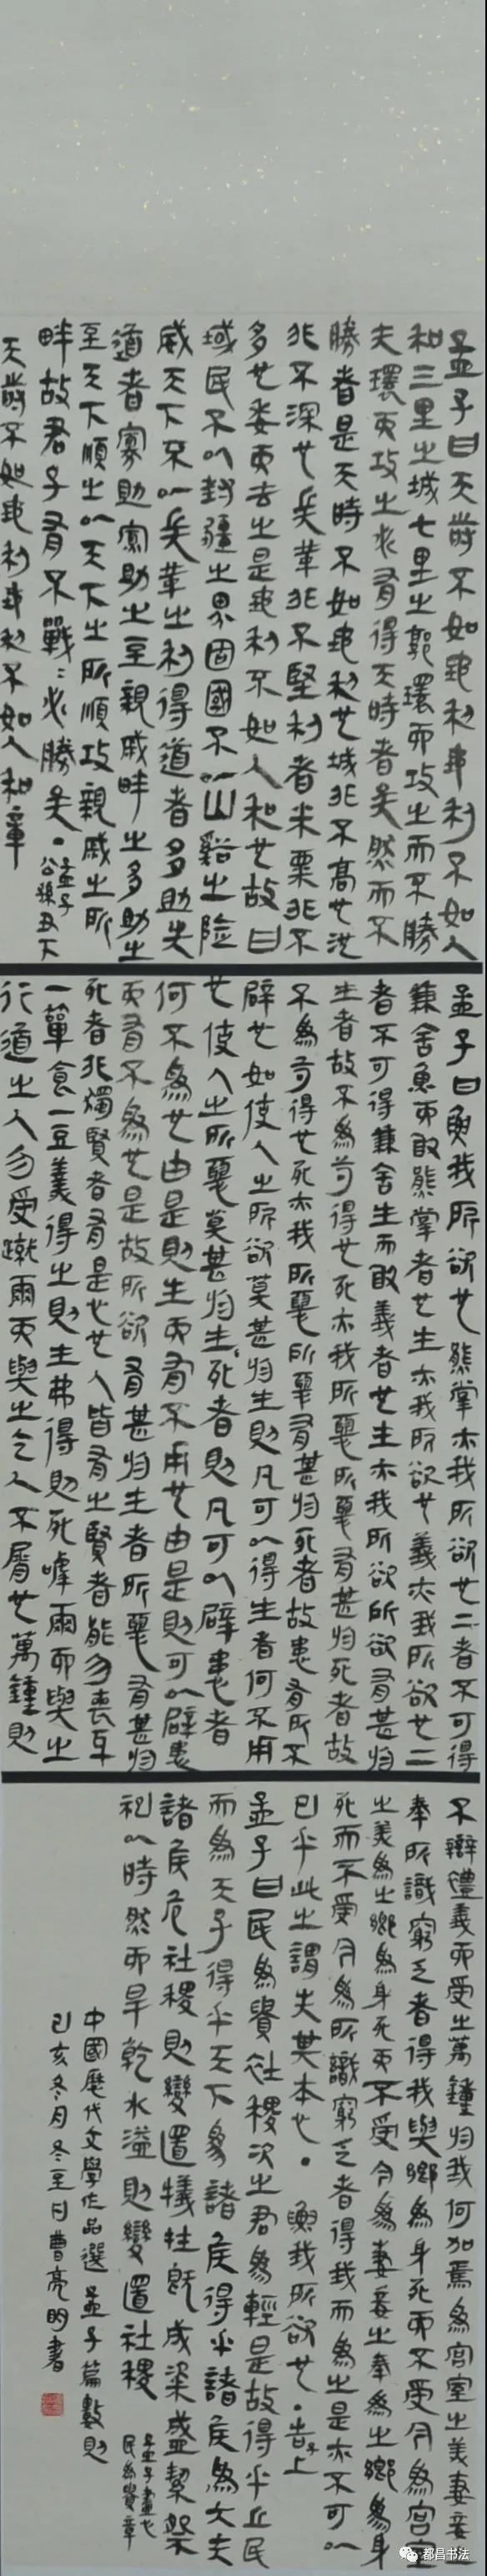 孟子曰天時不如地利地利不如人
和三里之城七里之郭環而攻之而不勝
夫環而攻之必有得天時者矣然而不
勝者是天時不如地利也城非不高也池
非不深也兵革非不堅利者米粟非不
多也委而去之是地利不如人和也故曰
域民不以封疆之界固國不以山谿之險
威天下不以兵革之利得道者多助失
道者寡助寡助之至親戚畔之多助之
至天下順之以天下之所順攻親戚之所
畔故君子有不戰〻必勝矣。孟子
公孫丑下
天時不如地利地利不如人和章
孟子曰魚我所欲也熊掌亦我所欲也二者不可得
兼舍魚而取熊掌者也生亦我所欲也義亦我所欲也二
者不可得兼舍生而取義者也生亦我所欲所欲有甚於
生者故不為苟得也死亦我所惡所惡有甚於死者故
不為苟得也死亦我所惡所惡有甚於死者故患有所不
辟也如使人之所欲莫甚於生則凡可以得生者何不用
也使人之所惡莫甚於生死者則凡可以辟患者
何不為也由是則生而有不用也由是則可以辟患
而有不為也是故所欲有甚於生者所惡有甚於
死者非獨賢者有是心也人皆有之賢者能勿喪耳
一簞食一豆羹得之則生弗得則死嘑爾而與之
行道之人勿受蹴爾而與之乞人不屑也萬鍾則
不辯禮義而受之萬鍾於我何加焉為宮室之美妻妾之
奉所識窮乏者得我與鄉為身死而不受今為宮室
之美為之鄉為身死而不受今為妻妾之奉為之鄉為身
死而不受今為所識窮乏者得我而為之是亦不可以
已乎此之謂失其本也。魚我所欲也。告子上
孟子曰民為貴社稷次之君為輕是故得乎丘民
而為天子得乎天下為諸侯得乎諸侯為大夫
諸侯危社稷則變置犧牲既成粢盛絜祭
祀以時然而旱乾水溢則變置社稷 孟子盡心
民為貴章
中國歷代文學作品選孟子篇數則
己亥冬月冬至日曹亮明書
都昌书法